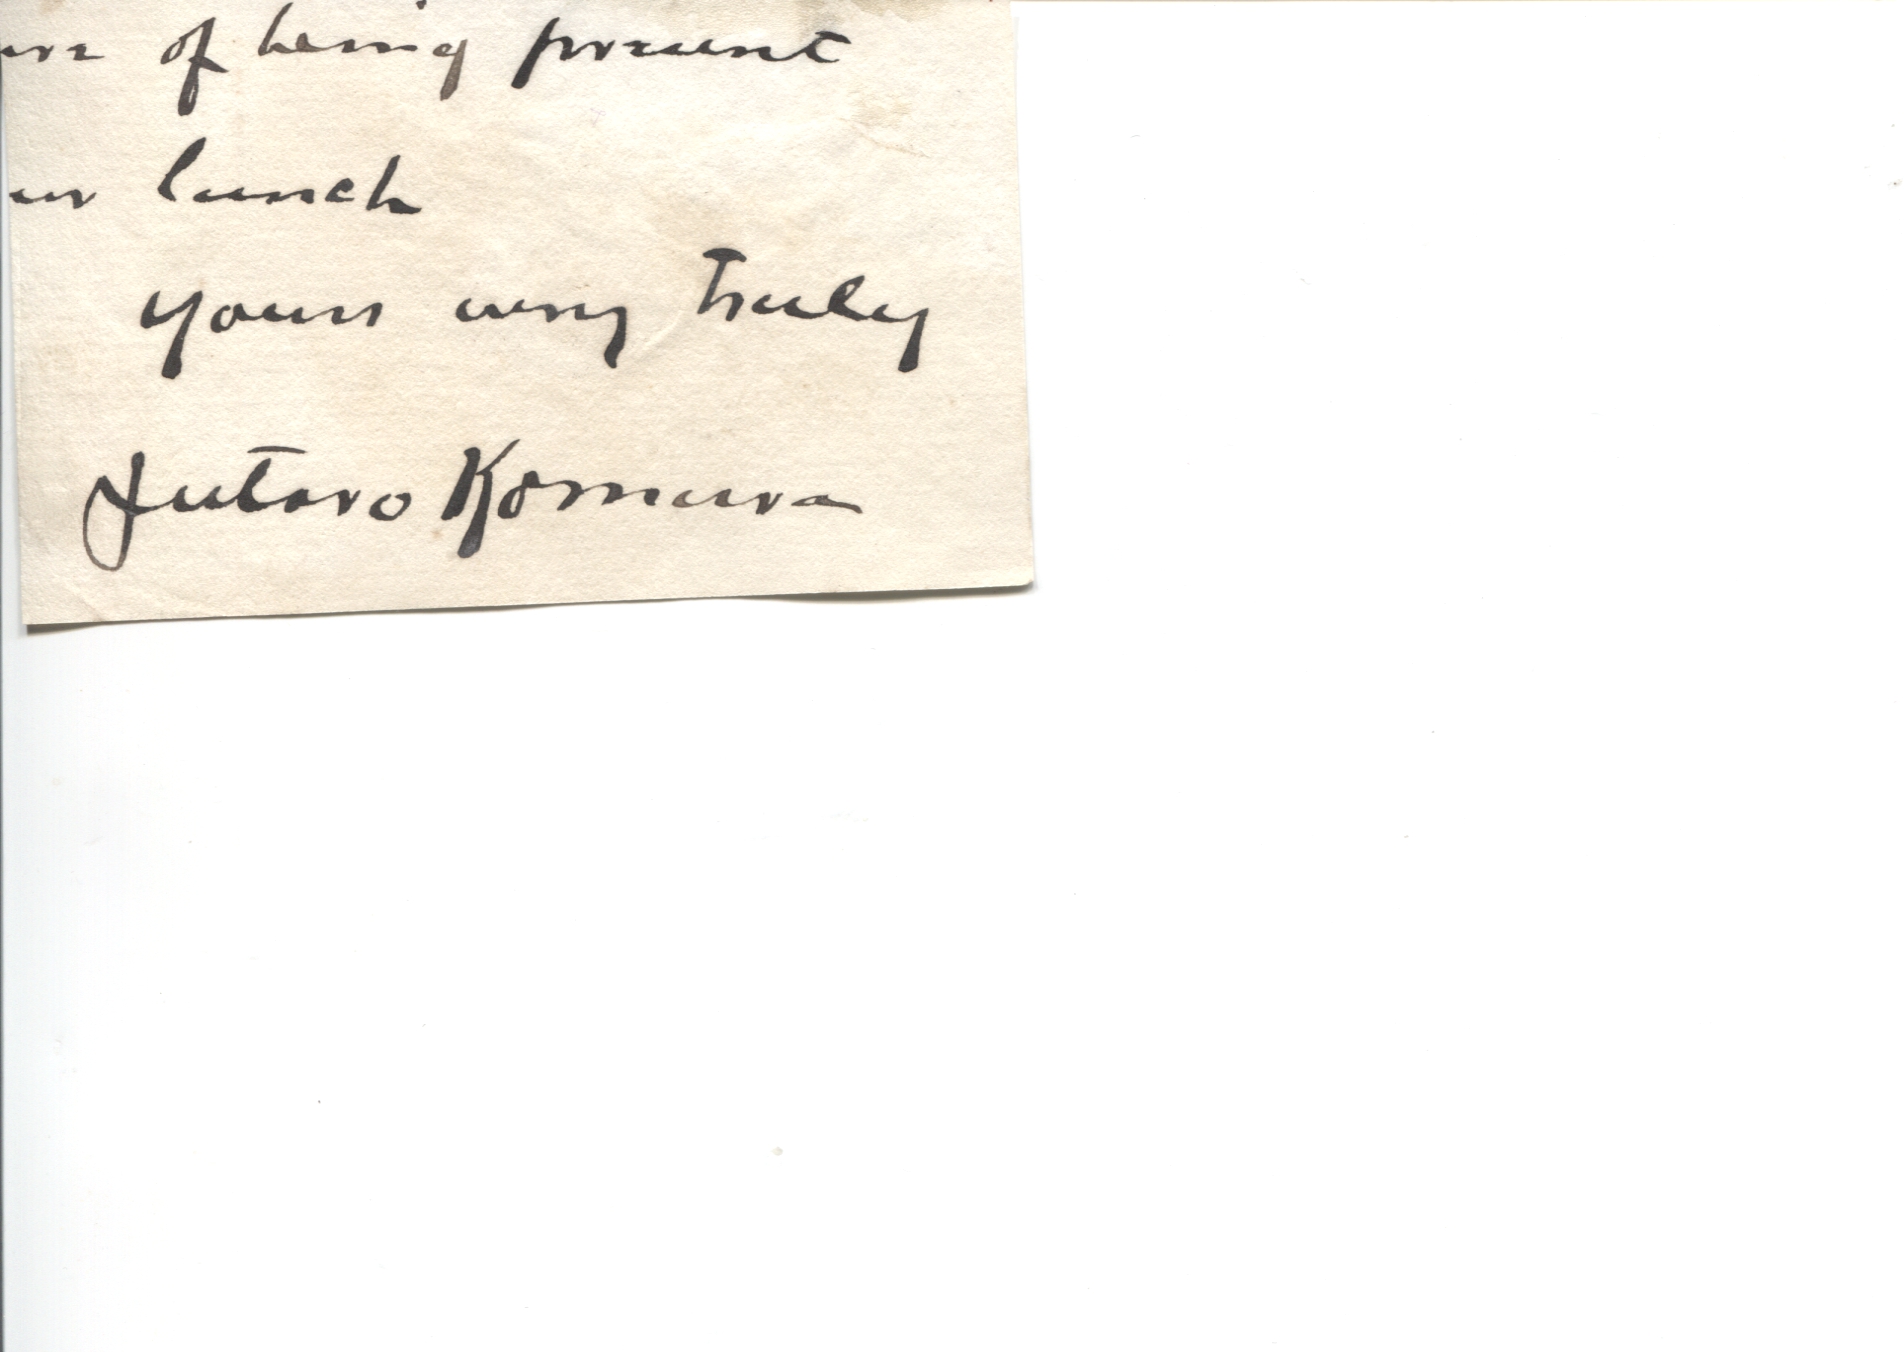 ure of being present
ur lunch
yours very truly
Jutaro Komura